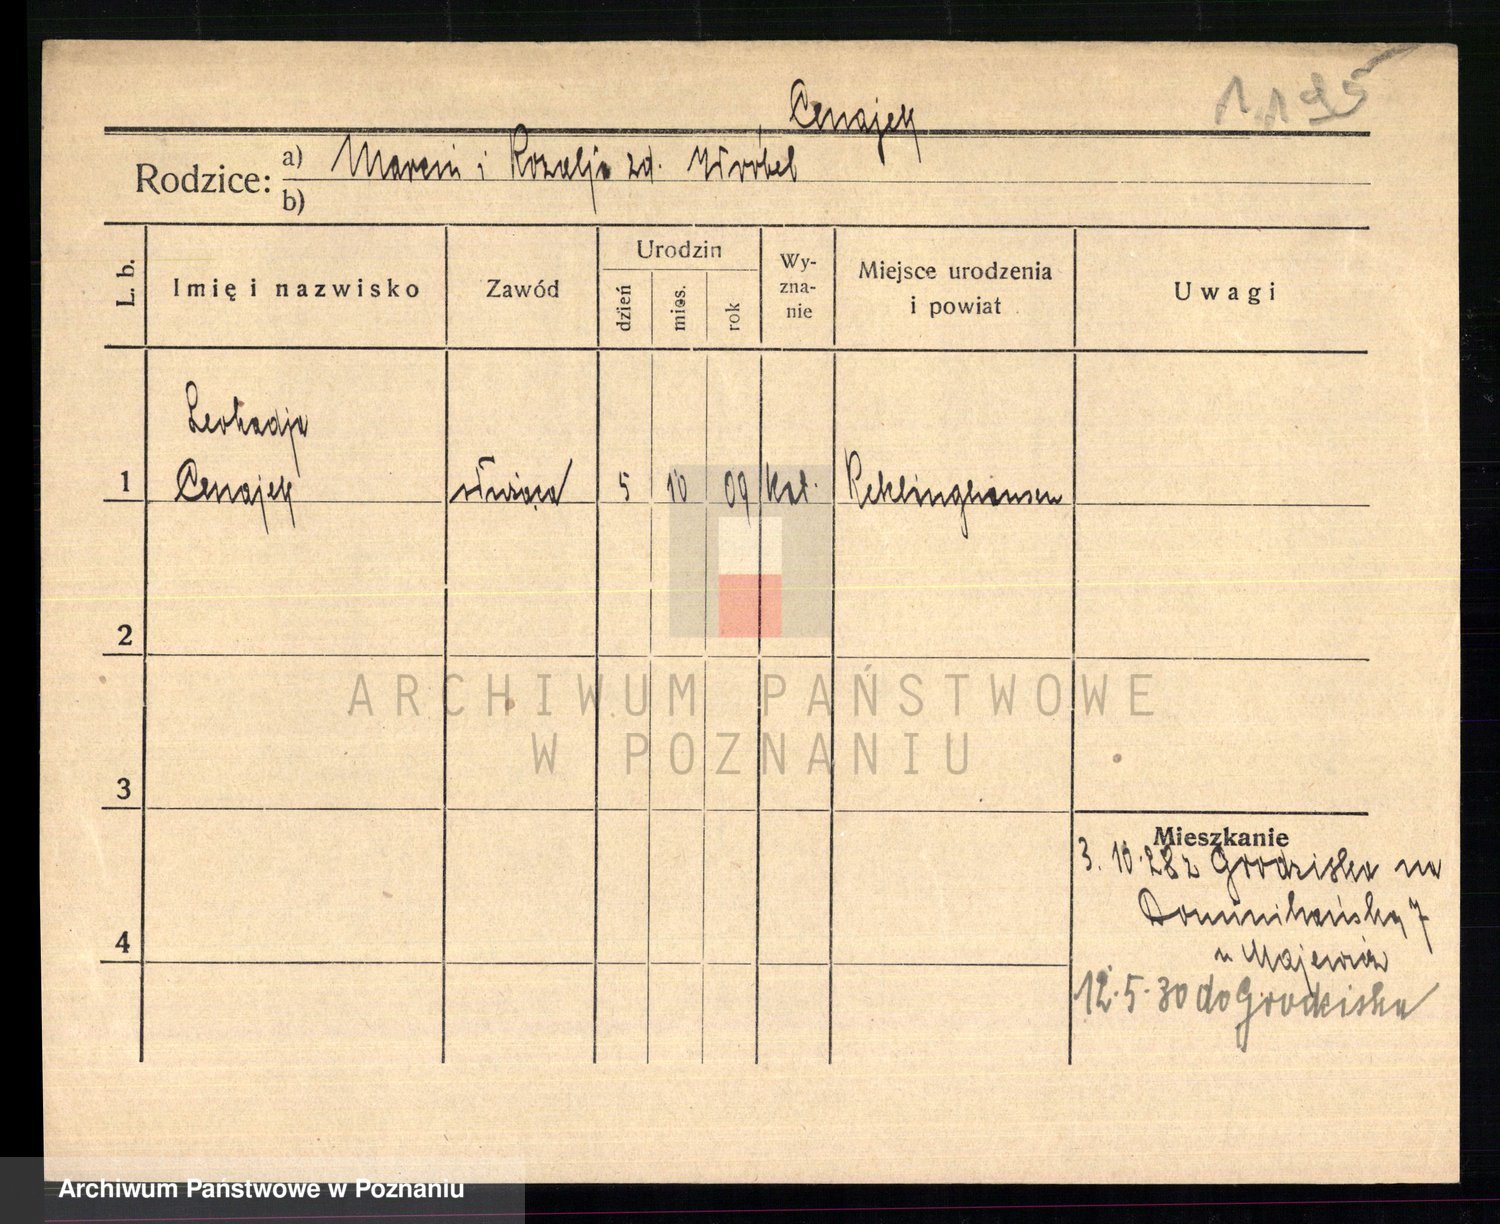 1.195
Cenajek
Rodzice: a) Marcin i Rozalja zd. Wróbel
b)
L. b.
Imię i nazwisko
Zawód
Urodzin
dzień
mies.
rok
Wy-
zna-
nie
Miejsce urodzenia
i powiat
Uwagi
Leokadja
1 Cenajek służąca 5 10 09 kat. Reklinghausen
2
ARCHIWUM PAŃSTWOWE
W POZNANIU
3
Mieszkanie
3. 10. 28 z Grodziska na
Dominikańską 7
4
12. 5. 30 do Grodziska
Archiwum Państwowe w Poznaniu